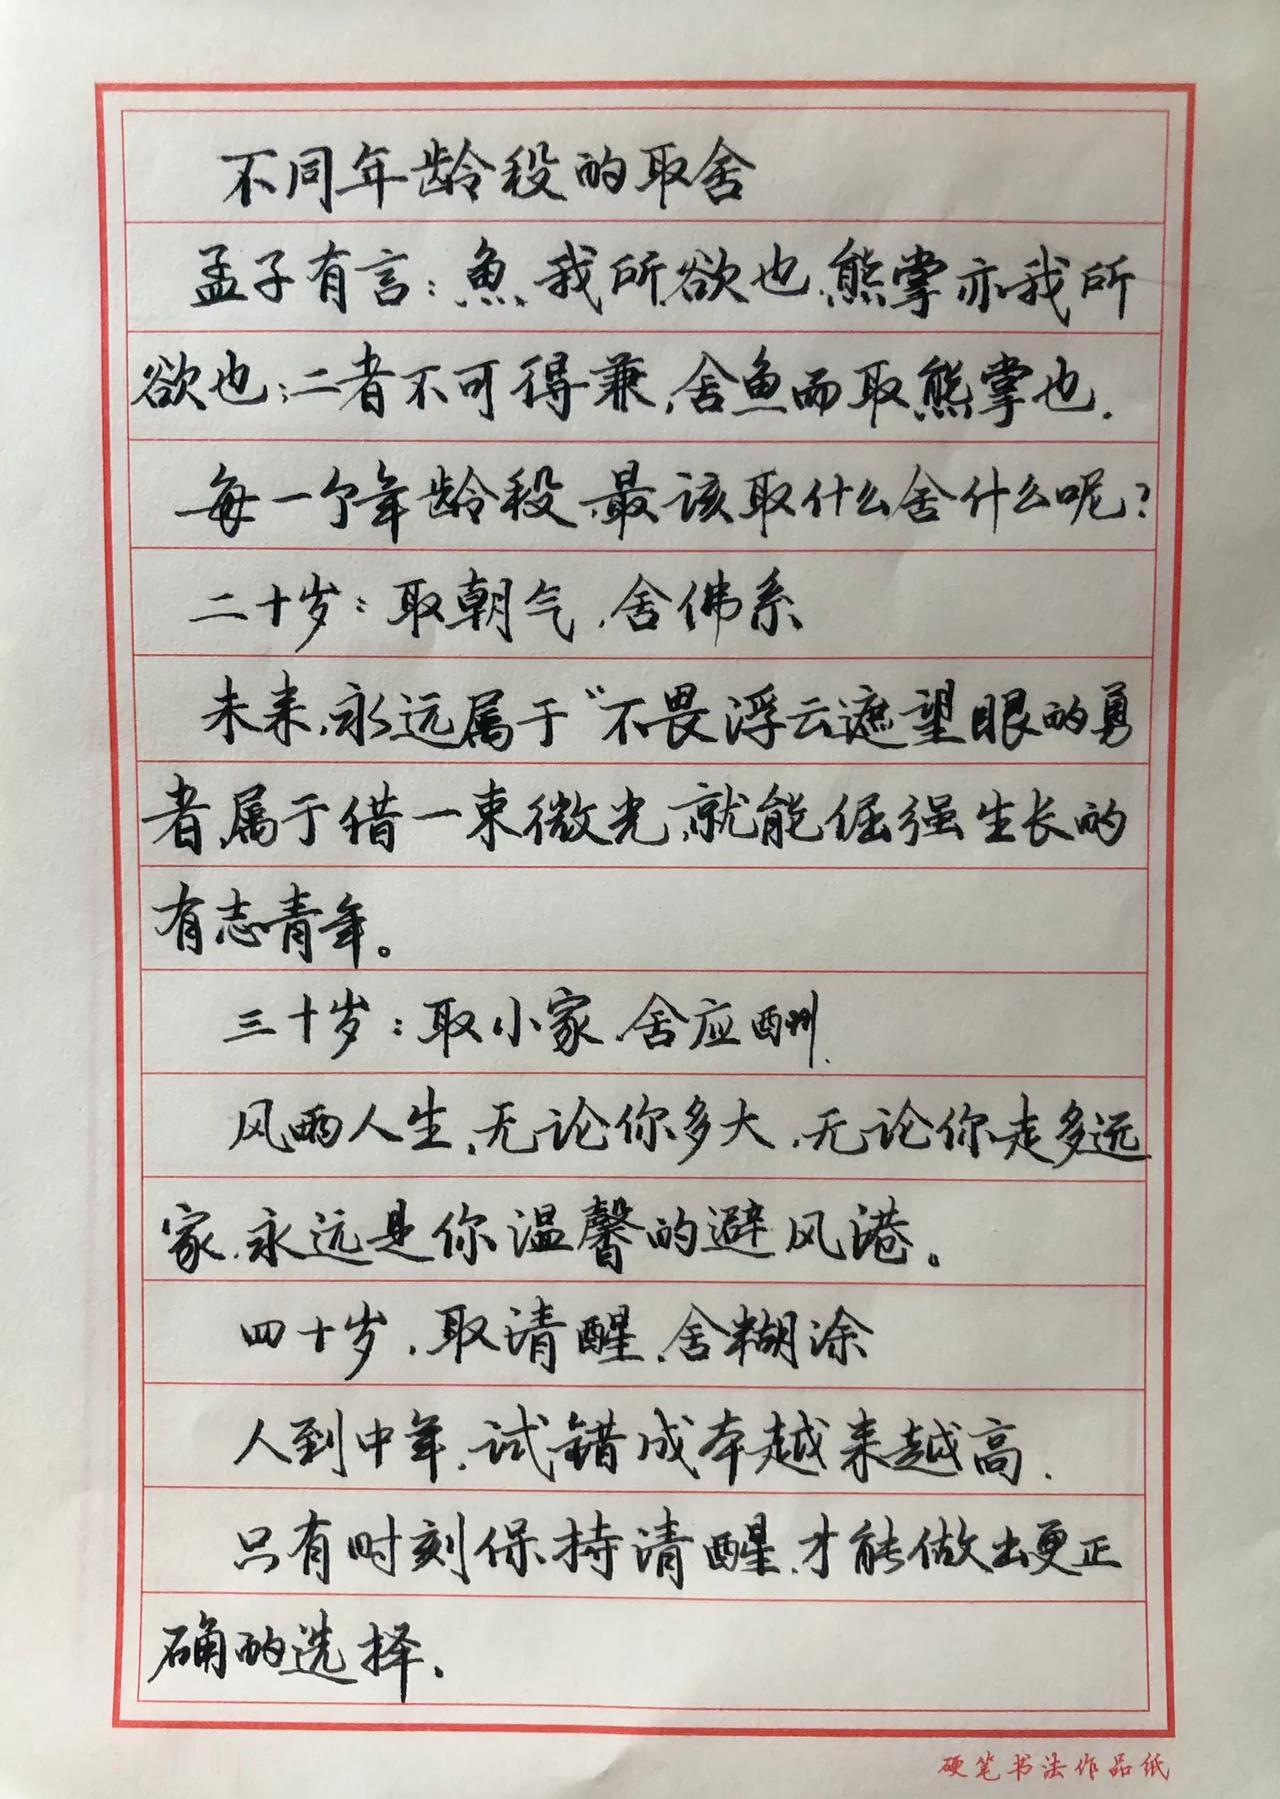 不同年龄段的取舍
孟子有言：鱼，我所欲也，熊掌亦我所
欲也；二者不可得兼，舍鱼而取熊掌也.
每一个年龄段，最该取什么舍什么呢？
二十岁：取朝气，舍佛系
未来，永远属于“不畏浮云遮望眼的勇
者，属于借一束微光，就能倔强生长的
有志青年。
三十岁：取小家，舍应酬
风雨人生，无论你多大，无论你走多远
家，永远是你温馨的避风港。
四十岁，取清醒，舍糊涂
人到中年，试错成本越来越高.
只有时刻保持清醒，才能做出更正
确的选择.
硬笔书法作品纸